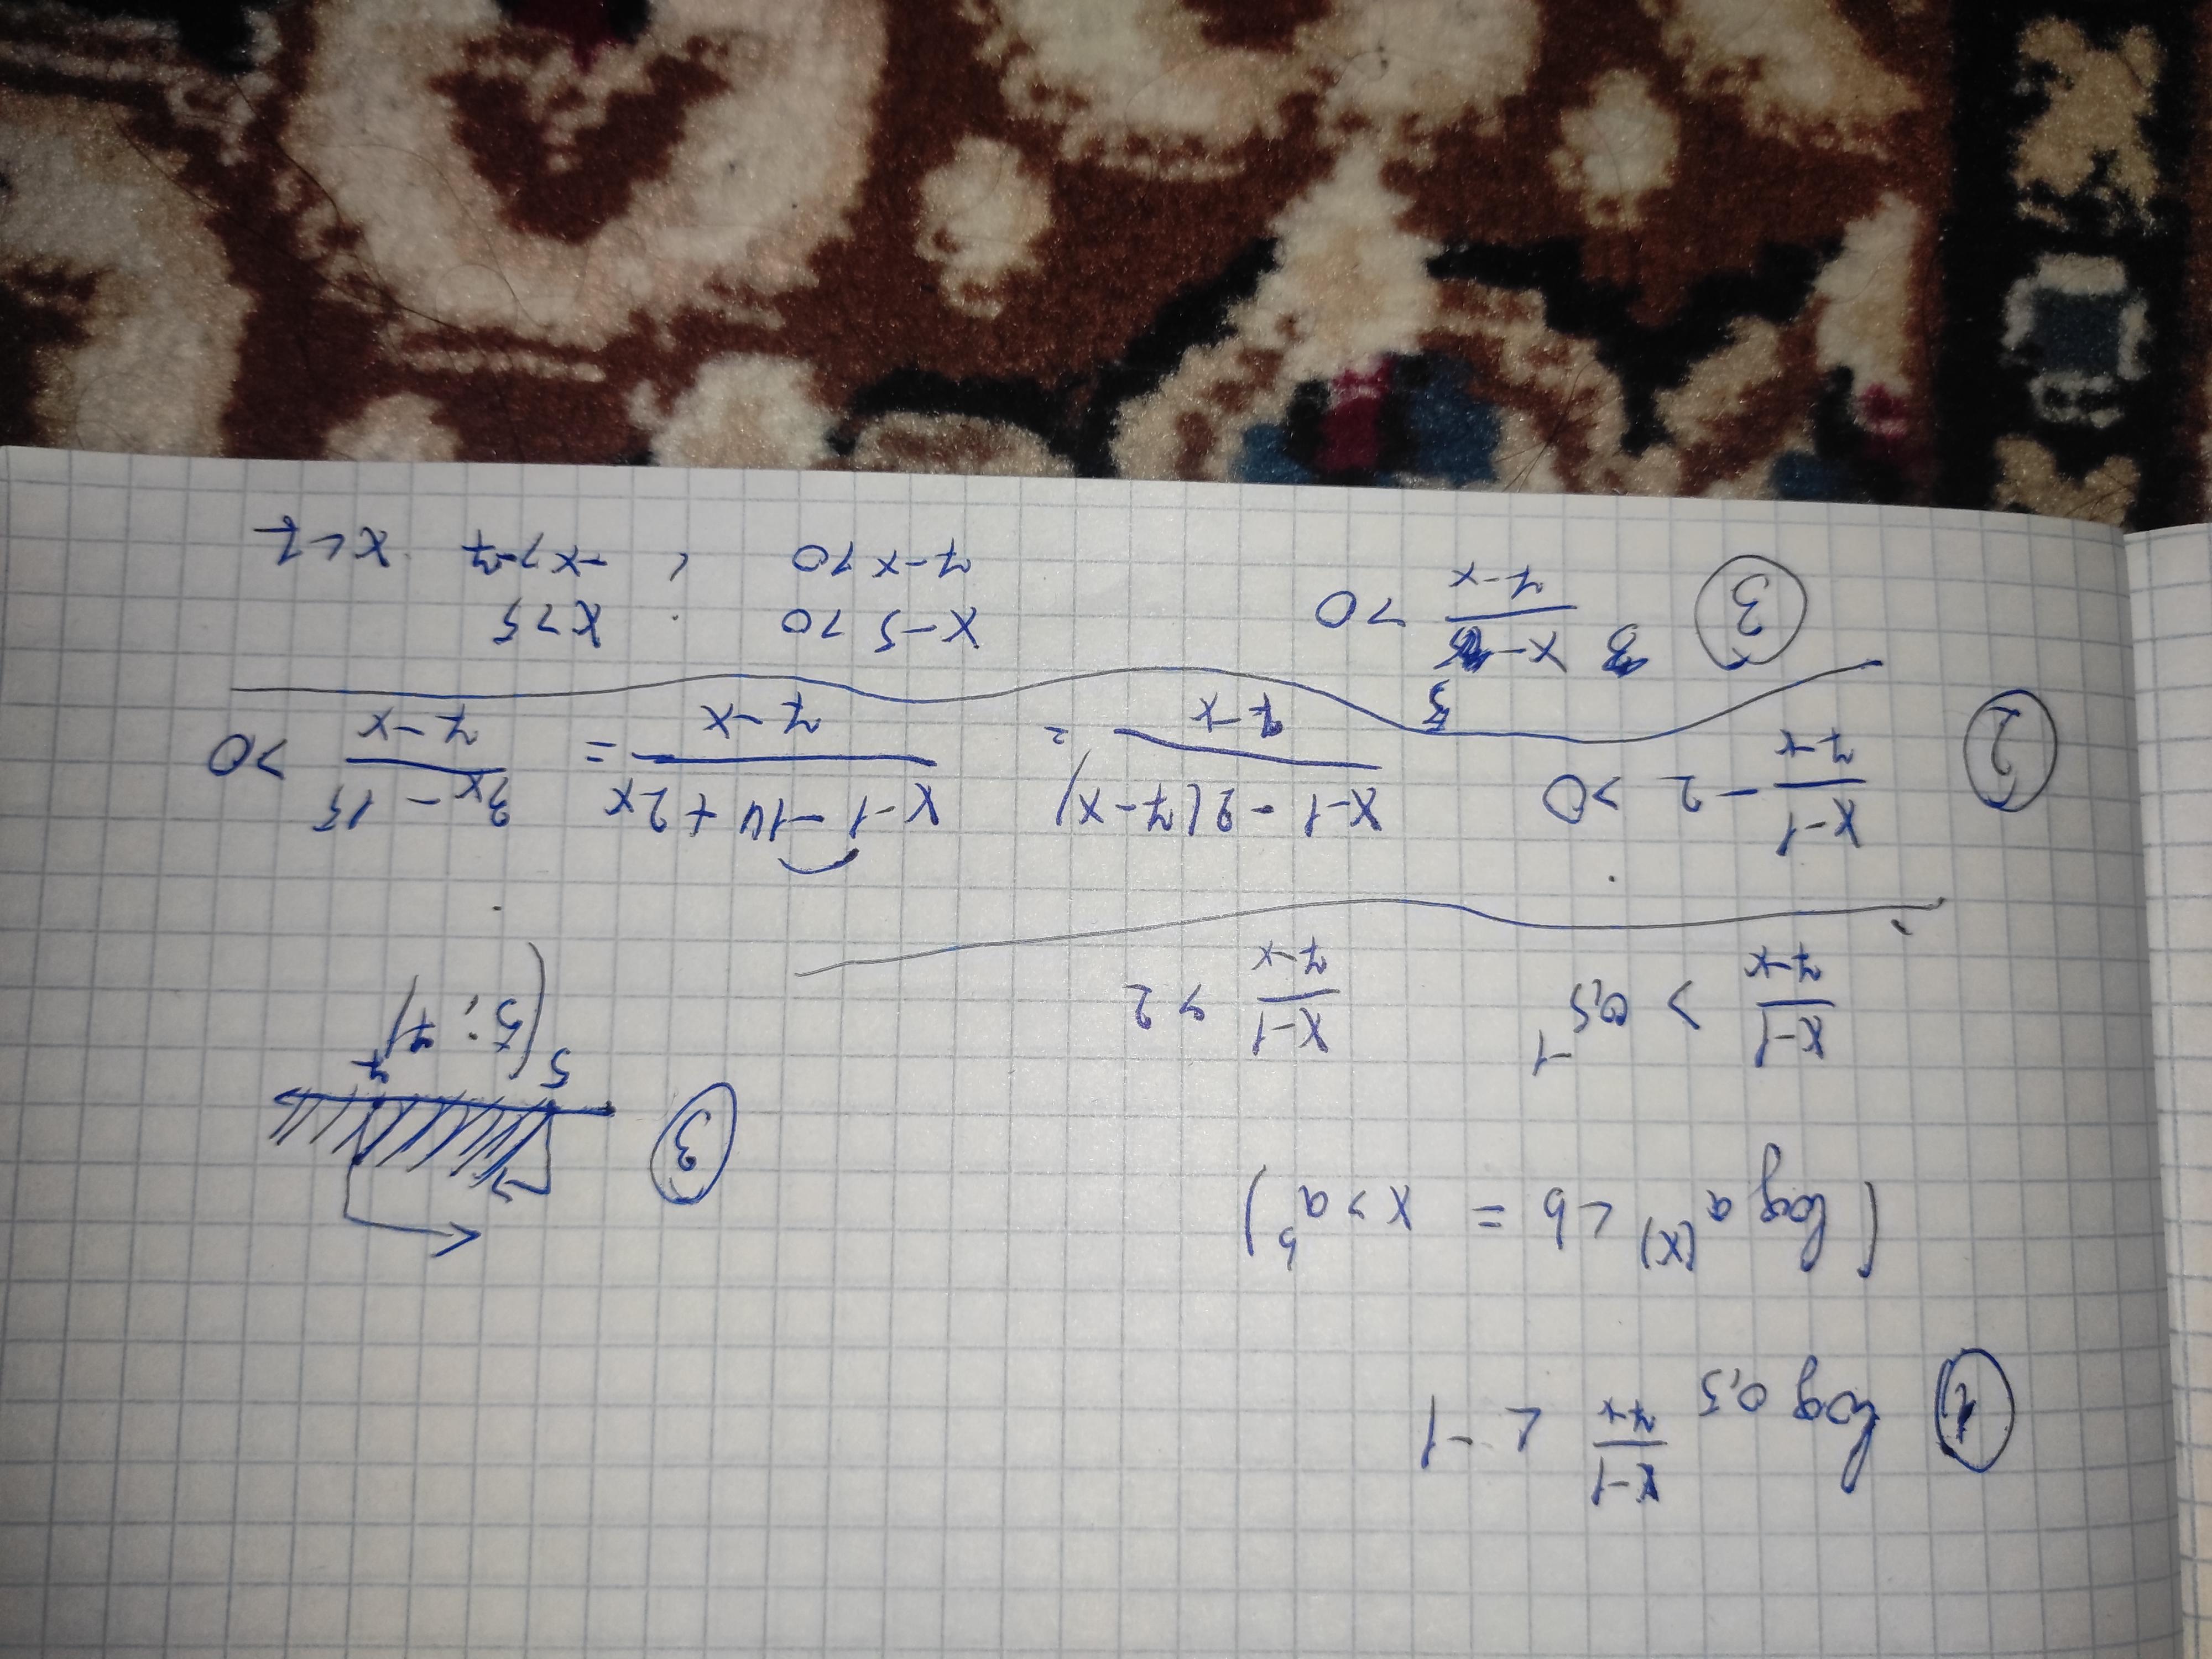 1 log 0,5 x-1/7-x < -1
(log a (x) < b = x > a^b)
x-1/7-x > 0,5^-1 x-1/7-x > 2
2 x-1/7-x - 2 > 0 x-1-2(7-x)/7-x = x-1-14+2x/7-x = 3x-15/7-x > 0
3 3 x-5/7-x > 0
x-5>0 x>5
7-x>0 -x>-7 x<7
3
5 7
(5; 7)